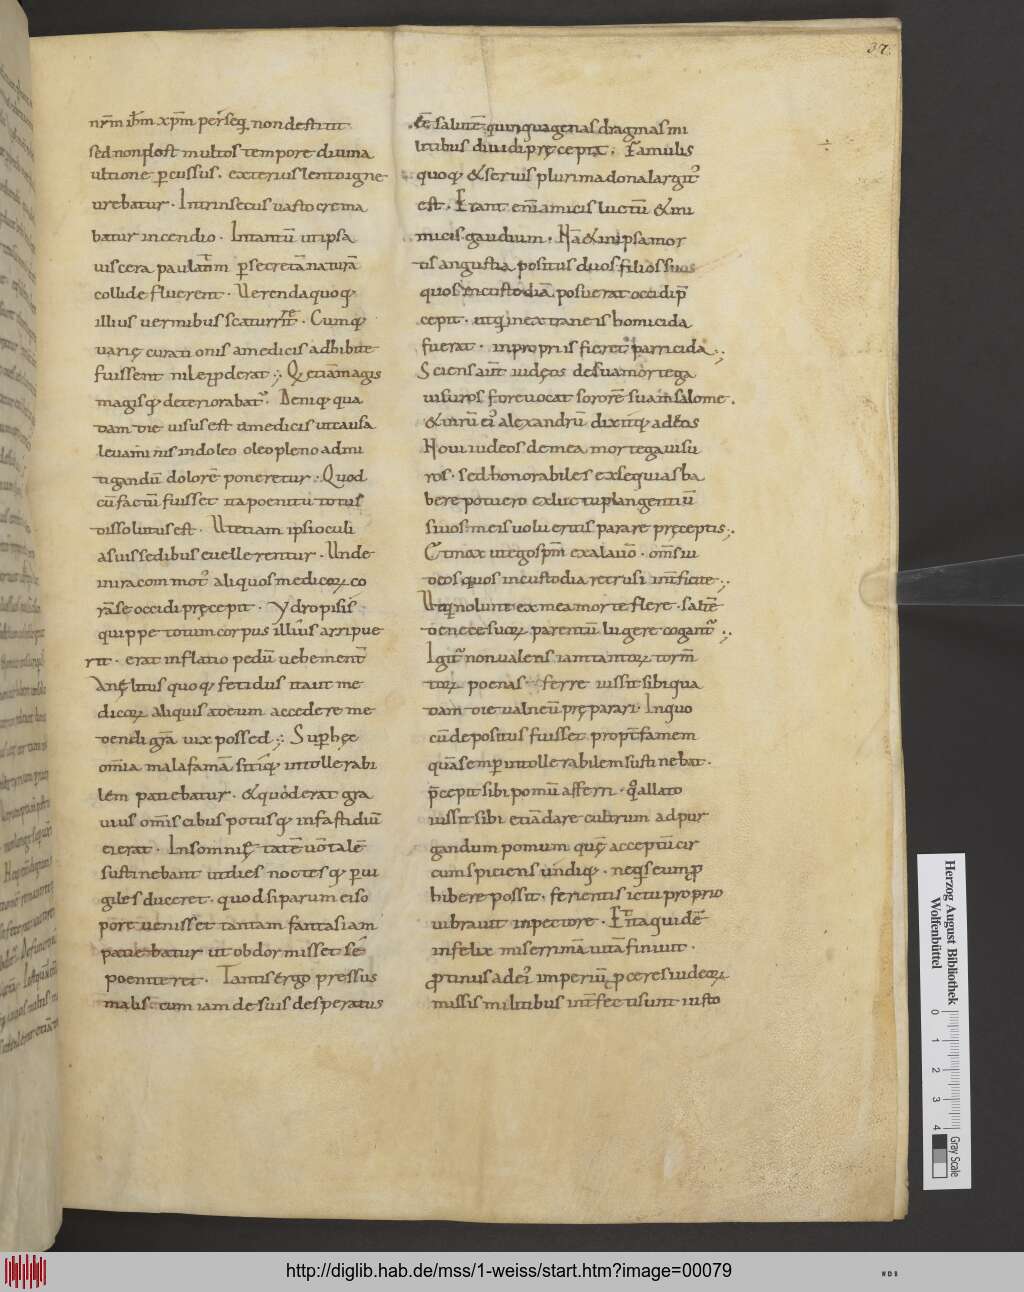 37.
nr̄m ih̄m xp̄m perseq; non destitit
sed non post multos tempore diuina
ultione ꝑcussus. exterius lento igne
urebatur. Intrinsecus uasto crema
batur incendio. Intantū ut ipsa
uiscera paulatim ꝑ secretā naturā
collide fluerent. Uerenda quoq;
illius uermibus scaturrirēt. Cumq;
uarię curationis a medicis adhibite
fuissent nil ei ꝓderat; Q; etiā magis
magisq; deteriorabat᷑. Deniq; qua
dam die uisus est a medicis ut causa
leuaminis in doleo oleo pleno admi
tigandū dolorē poneretur. Quod
cū factū fuisset ita poenitu totus
dissolutus est. Ut etiam ipsi oculi
a suis sedibus euellerentur. Unde
in ira commot᷑ aliquos medicoꝝ co
rā se occidi pręcepit. Ydropisis
quippe totum corpus illius arripue
rit. erat inflatio pedū uehement̄
Anęlitus quoq; fetidus ita ut me
dicoꝝ aliquis ad eum accedere me
dendi gr̄a uix possed; Super hęc
om̄ia mala famā sitiq; intollerabi
lem patiebatur. & quod erat gra
uius om̄is cibus potusq; in fastidiū
ei erat. Insomnię tatē uo talē
sustinebant ut dies noctesq; ꝑui
giles duceret. quod si parum ei so
por euenisset tantam fantasiam
patiebatur ut obdormisset sē
poeniteret. Tantis ergo pressus
malis. cum iam de suis desperatus
ēē salute quinquagenas dragmas mi
litibus diuidi pręcepit. Famulis
quoq; & seruis plurima dona largit᷑
est. Erant eni amicis luctū & ini
micis gaudium. Nā & in ipsa mor
tis angustia positus duos filios suos
quos in custodiā posuerat occidi p̄
cepit. ut q; in extraneis homicida
fuerat. in propriis fieret parricida;
Sciens aut̄ iudęos de sua morte ga
uisuros fore uocat sororē suam salome.
& uirū ei᷑ alexandrū dixitq; ad eos
Noui iudeos de mea morte gauisu
ros. sed honorabiles exsequias ha
bere potuero ex luctu plangentiū
si uos meis uolueritis parare pręceptis;
Et mox ut ego sp̄m exalauo. om̄s iu
deos quos in custodia retrusi int̄ficite;
Utq; nolunt ex mea morte flere. saltē
de nece suoꝝ parentū lugere cogant᷑;
Igit᷑ non ualens iam tantoꝝ torm̄
toꝝ poenas ferre iussit sibi qua
dam die ualneū pręparari. In quo
cū depositus fuisset propt̄ famem
quā semꝑ intollerabilem sustinebat.
p̄cepit sibi pomū afferri. q̊ allato
iussit sibi etiā dare cultrum ad pur
gandum pomum quę accepti cir
cumspiciens undiq;. neq;s eum ꝓ
hibere possit. ferientis ictu proprio
uibrauit in pectore. Et ita quidē
infelix miserrimā uitā finiuit.
ꝓtinus ad ei᷑ imperiū ꝓceres iudeoꝝ
missis militibus int̄fecti sunt iusto
Herzog August Bibliothek
Wolfenbüttel
0 1 2 3 4
Gray Scale
http://diglib.hab.de/mss/1-weiss/start.htm?image=00079